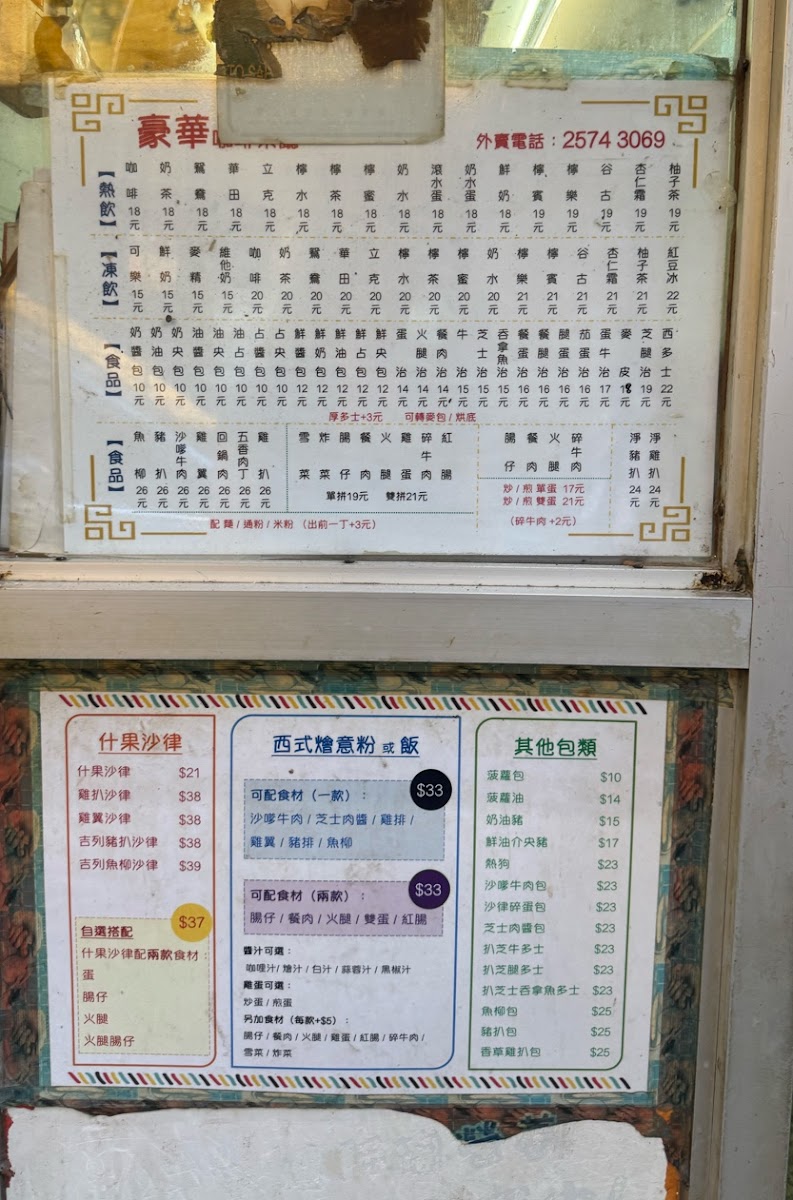 豪華
外賣電話：2574 3069
【熱飲】
咖啡 18元
奶茶 18元
鴛鴦 18元
華田 18元
立克 18元
檸水 18元
檸茶 18元
檸蜜 18元
奶水 18元
滾水蛋 18元
奶水蛋 18元
鮮奶 18元
檸賓 19元
檸樂 19元
谷古 19元
杏仁霜 19元
柚子茶 19元
【凍飲】
可樂 15元
鮮奶 15元
麥精 15元
維他奶 15元
咖啡 20元
奶茶 20元
鴛鴦 20元
華田 20元
立克 20元
檸水 20元
檸茶 20元
檸蜜 20元
奶水 20元
檸樂 21元
檸賓 21元
谷古 21元
杏仁霜 21元
柚子茶 21元
紅豆冰 22元
【食品】
奶醬包 10元
奶油包 10元
奶央包 10元
油醬包 10元
油央包 10元
油占包 10元
占醬包 10元
占央包 10元
鮮醬包 12元
鮮奶包 12元
鮮油包 12元
鮮占包 12元
鮮央包 12元
蛋治 14元
火腿治 14元
餐肉治 14元
牛治 15元
芝士治 15元
吞拿魚治 15元
餐蛋治 16元
餐腿治 16元
腿蛋治 16元
茄蛋治 16元
蛋牛治 17元
麥皮 18元
芝腿治 19元
西多士 22元
厚多士+3元 可轉麥包 / 烘底
【食品】
魚柳 26元
豬扒 26元
沙嗲牛肉 26元
雞翼 26元
回鍋肉 26元
五香肉丁 26元
雞扒 26元
雪菜
炸菜
腸仔
餐肉
火腿
雞蛋
碎牛肉
紅腸
單拼19元 雙拼21元
腸仔
餐肉
火腿
碎牛肉
炒 / 煎 單蛋 17元
炒 / 煎 雙蛋 21元
（碎牛肉 +2元）
淨豬扒 24元
淨雞扒 24元
配 麵 / 通粉 / 米粉 （出前一丁+3元）
什果沙律
什果沙律 $21
雞扒沙律 $38
雞翼沙律 $38
吉列豬扒沙律 $38
吉列魚柳沙律 $39
$37
自選搭配
什果沙律配兩款食材：
蛋
腸仔
火腿
火腿腸仔
西式燴意粉 或 飯
可配食材（一款）： $33
沙嗲牛肉 / 芝士肉醬 / 雞排 /
雞翼 / 豬排 / 魚柳
可配食材（兩款）： $33
腸仔 / 餐肉 / 火腿 / 雙蛋 / 紅腸
醬汁可選：
咖哩汁 / 燴汁 / 白汁 / 蒜蓉汁 / 黑椒汁
雞蛋可選：
炒蛋 / 煎蛋
另加食材（每款+$5）：
腸仔 / 餐肉 / 火腿 / 雞蛋 / 紅腸 / 碎牛肉 /
雪菜 / 炸菜
其他包類
菠蘿包 $10
菠蘿油 $14
奶油豬 $15
鮮油介央豬 $17
熱狗 $23
沙嗲牛肉包 $23
沙律碎蛋包 $23
芝士肉醬包 $23
扒芝牛多士 $23
扒芝腿多士 $23
扒芝士吞拿魚多士 $23
魚柳包 $25
豬扒包 $25
香草雞扒包 $25